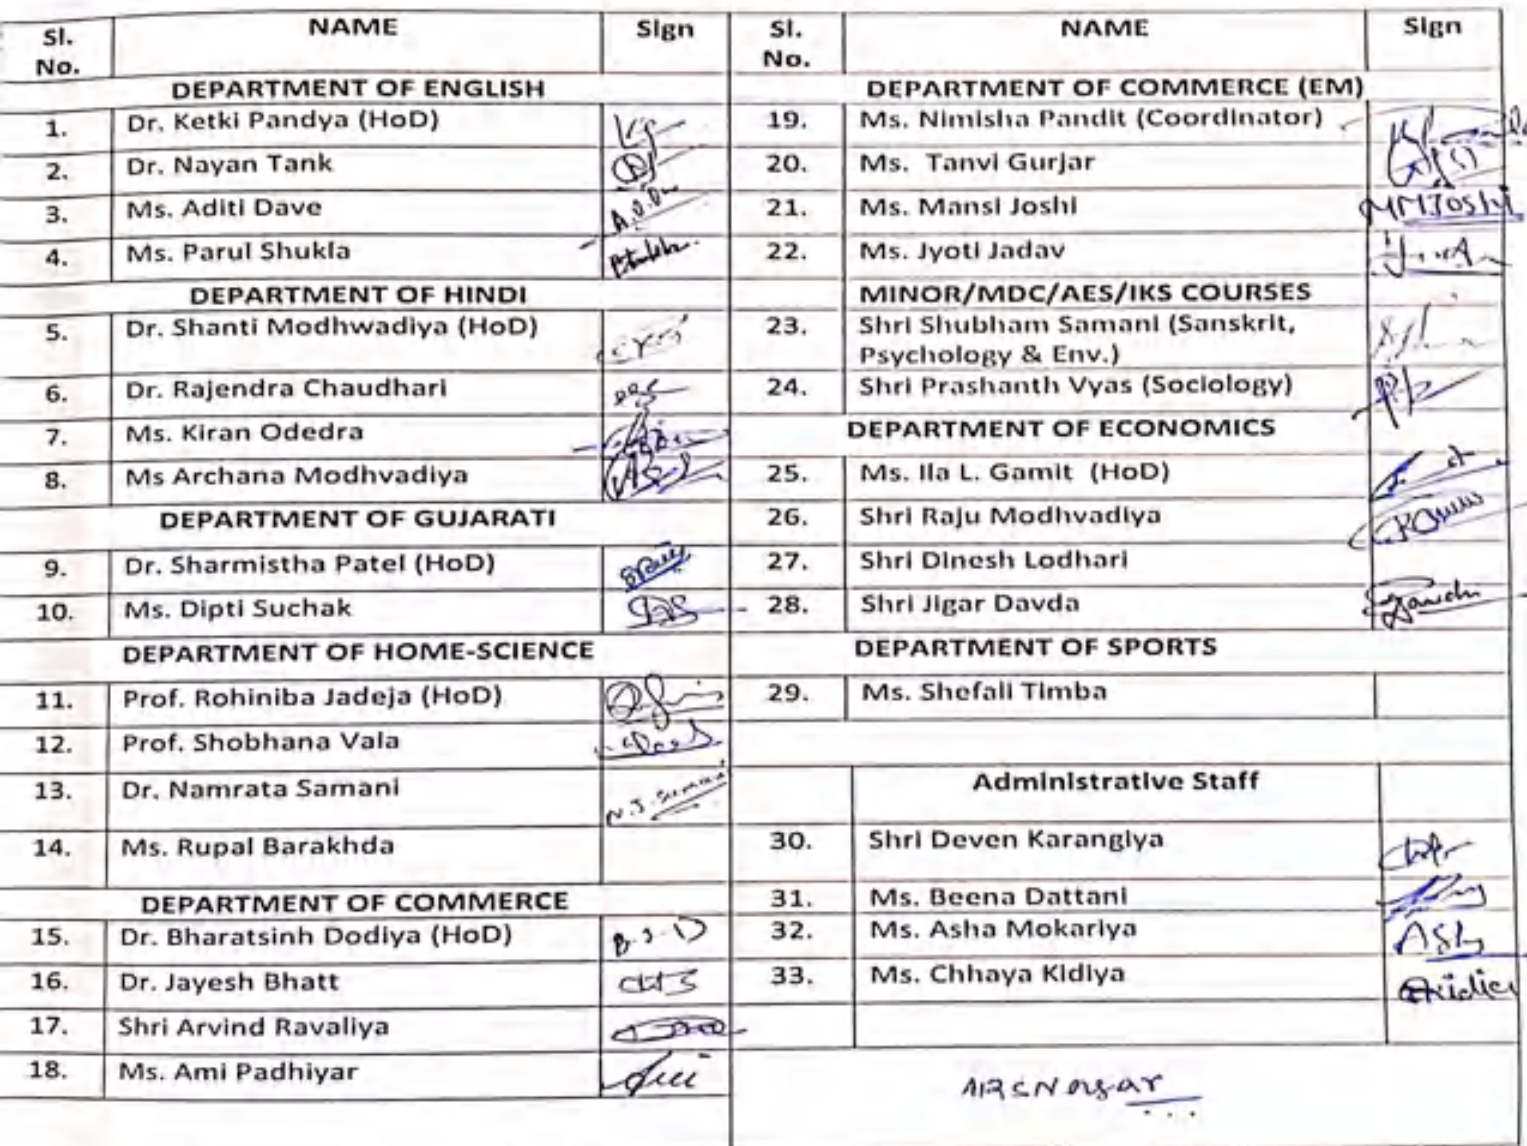 Sl. No. NAME Sign
DEPARTMENT OF ENGLISH
1. Dr. Ketki Pandya (HoD)
2. Dr. Nayan Tank
3. Ms. Aditi Dave
4. Ms. Parul Shukla
DEPARTMENT OF HINDI
5. Dr. Shanti Modhwadiya (HoD)
6. Dr. Rajendra Chaudhari
7. Ms. Kiran Odedra
8. Ms Archana Modhvadiya
DEPARTMENT OF GUJARATI
9. Dr. Sharmistha Patel (HoD)
10. Ms. Dipti Suchak
DEPARTMENT OF HOME-SCIENCE
11. Prof. Rohiniba Jadeja (HoD)
12. Prof. Shobhana Vala
13. Dr. Namrata Samani
14. Ms. Rupal Barakhda
DEPARTMENT OF COMMERCE
15. Dr. Bharatsinh Dodiya (HoD) B.S.D
16. Dr. Jayesh Bhatt
17. Shri Arvind Ravaliya
18. Ms. Ami Padhiyar
Sl. No. NAME Sign
DEPARTMENT OF COMMERCE (EM)
19. Ms. Nimisha Pandit (Coordinator)
20. Ms. Tanvi Gurjar
21. Ms. Mansi Joshi M.M.Joshi
22. Ms. Jyoti Jadav
MINOR/MDC/AES/IKS COURSES
23. Shri Shubham Samani (Sanskrit,
Psychology & Env.)
24. Shri Prashanth Vyas (Sociology)
DEPARTMENT OF ECONOMICS
25. Ms. Ila L. Gamit (HoD)
26. Shri Raju Modhvadiya
27. Shri Dinesh Lodhari
28. Shri Jigar Davda
DEPARTMENT OF SPORTS
29. Ms. Shefali Timba
Administrative Staff
30. Shri Deven Karangiya
31. Ms. Beena Dattani
32. Ms. Asha Mokariya
33. Ms. Chhaya Kidiya